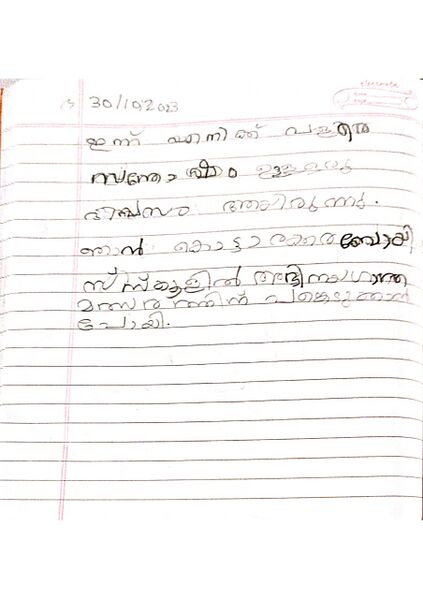 30/10/2023
ഇന്ന് എനിക്ക് വളരെ
സന്തോഷം ഉള്ള ഒരു
ദിവസം ആയിരുന്നു.
ഞാൻ കൊട്ടാരക്കര ബോയി
സ്സ്കൂളിൽ അഭിനയഗാന
മത്സരത്തിന് പങ്കെടുക്കാൻ
പോയി.